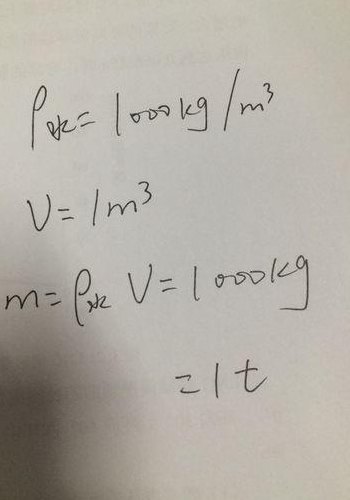 ρ水=1000kg/m³
V=1m³
m=ρ水V=1000kg
=1t